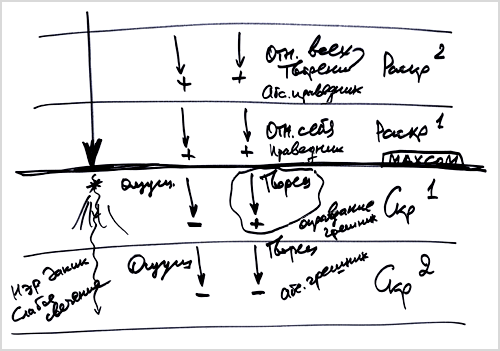 Отн. всех
Творений
Абс. праведник
Раскр 2
+ +
Отн. себя
праведник
Раскр 1
+ +
МАХСОМ
Ощущ.
Творец
Скр 1
- +
оправдание
грешник
Ощущ
Творец
Скр 2
- -
абс. грешник
Нэр Дакик
Слабое
свечение